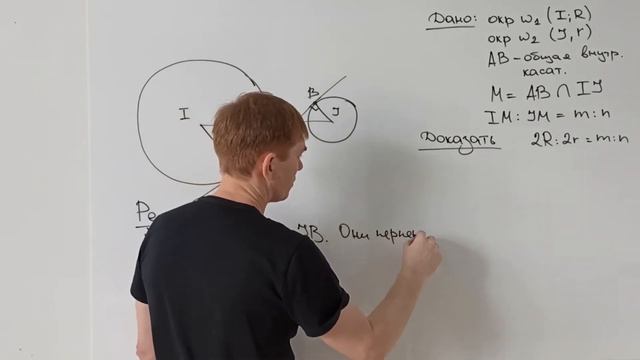 Дано: окр w₁ (I; R)
окр w₂ (J, r)
AB – общая внутр.
касат.
M = AB ∩ IJ
IM : JM = m : n
Доказать 2R : 2r = m : n
B
I
J
Ре
JB. Они перпен